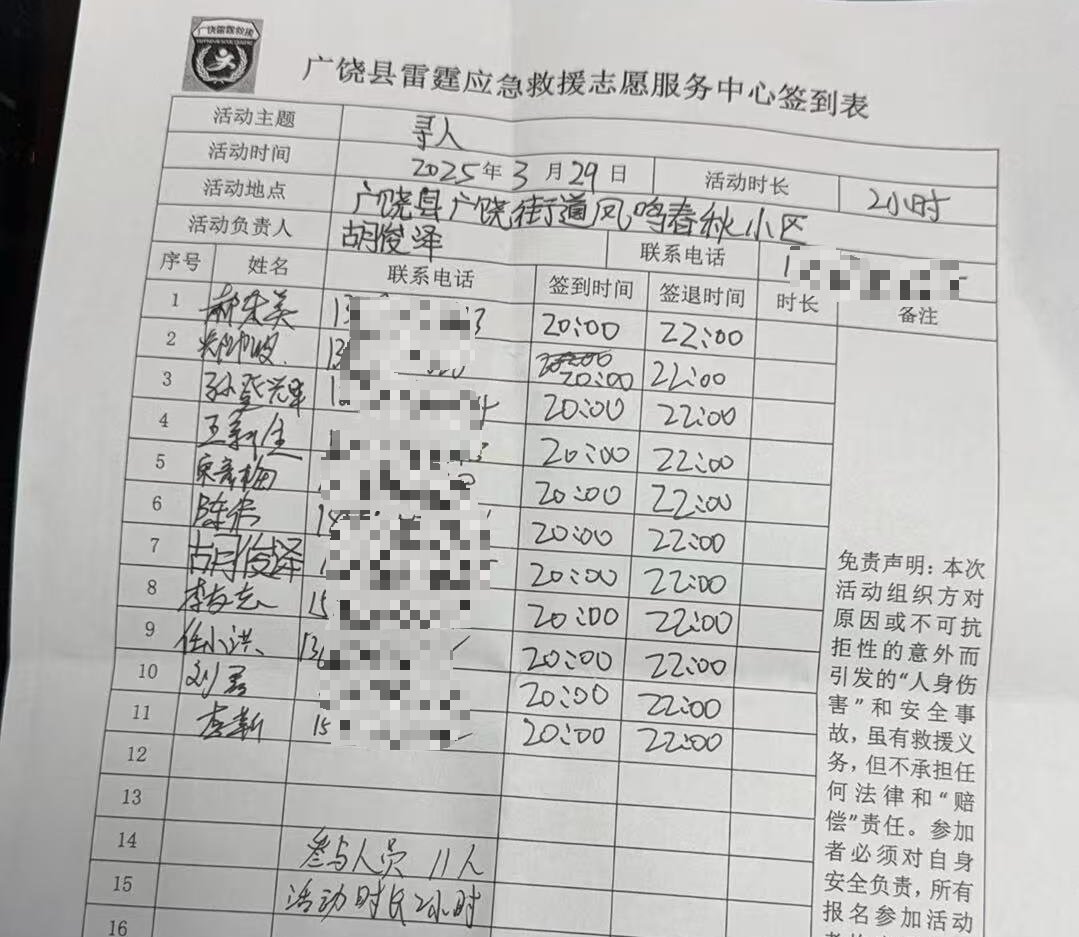 广饶雷霆救援
广饶县雷霆应急救援志愿服务中心签到表
活动主题 寻人
活动时间 2025年3月29日 活动时长 2小时
活动地点 广饶县广饶街道凤鸣春秋小区
活动负责人 胡俊泽 联系电话 1
序号 姓名 联系电话 签到时间 签退时间 时长 备注
1 13 3 20:00 22:00
2 13 20:00 22:00
3 孙登光 1 20:00 22:00
4 王新全 20:00 22:00
5 20:00 22:00
6 陈伟 1 20:00 22:00
7 胡俊泽 1 20:00 22:00
8 李友志 15 20:00 22:00
9 任小洪 136 20:00 22:00
10 刘 20:00 22:00
11 李新 15 20:00 22:00
12
13
14 参与人员 11人
15 活动时长2小时
16
免责声明：本次
活动组织方对
原因或不可抗
拒性的意外而
引发的“人身伤
害”和安全事
故，虽有救援义
务，但不承担任
何法律和“赔
偿”责任。参加
者必须对自身
安全负责，所有
报名参加活动